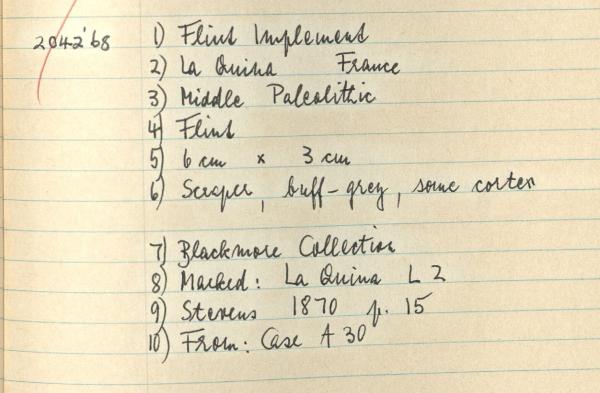 2042'68 1) Flint Implement
2) La Quina France
3) Middle Paleolithic
4) Flint
5) 6 cm x 3 cm
6) Scraper, buff-grey, some cortex
7) Blackmore Collection
8) Marked: La Quina L 2
9) Stevens 1870 p. 15
10) From: Case A 30